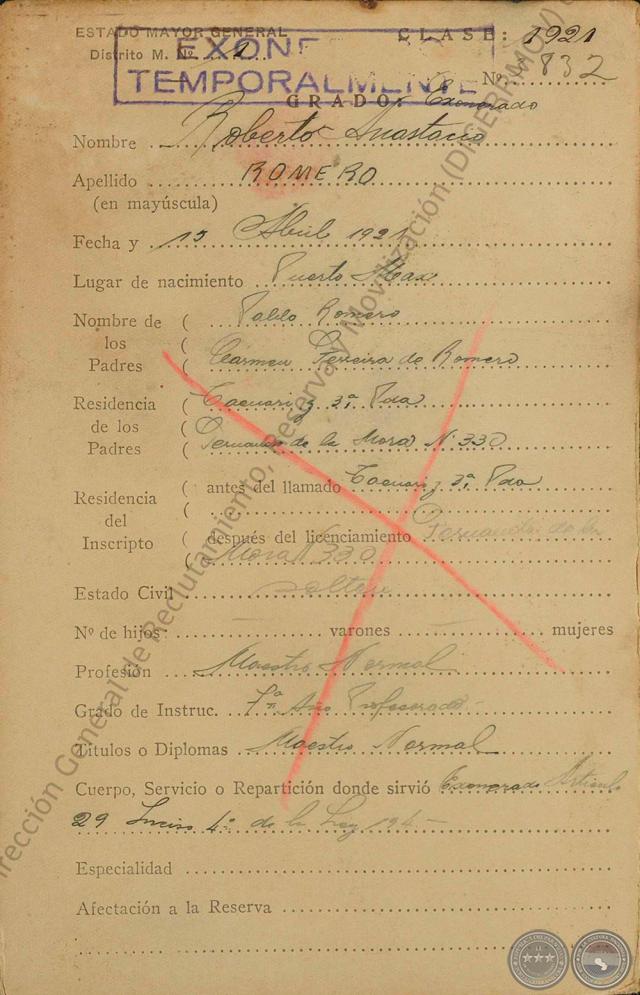 ESTADO MAYOR GENERAL
CLASE: 1921
Distrito M. Nº 1
EXONERADO
TEMPORALMENTE
Nº 832
GRADO: Exonerado
Nombre Roberto Anastacio
Apellido ROMERO
(en mayúscula)
Fecha y 15 Abril 1921
Lugar de nacimiento Puerto Max
Nombre de ( Pablo Romero
los (
Padres ( Carmen Ferreira de Romero
Residencia ( Tacuari y 3ª Pda
de los (
Padres ( Fernandez de la Mora N° 330
Residencia ( antes del llamado Tacuari y 3ª Pda
del (
Inscripto ( después del licenciamiento Fernandez de la
( Mora N° 330
Estado Civil soltero
Nº de hijos: varones mujeres
Profesión Maestro Normal
Grado de Instruc. Año Profesorado
Titulos o Diplomas Maestro Normal
Cuerpo, Servicio o Repartición donde sirvió Exonerado Articulo
29 Inciso 4° de la Ley 194
Especialidad
Afectación a la Reserva
Dirección General de Reclutamiento, Reserva y Movilización (DIGERRMOV)